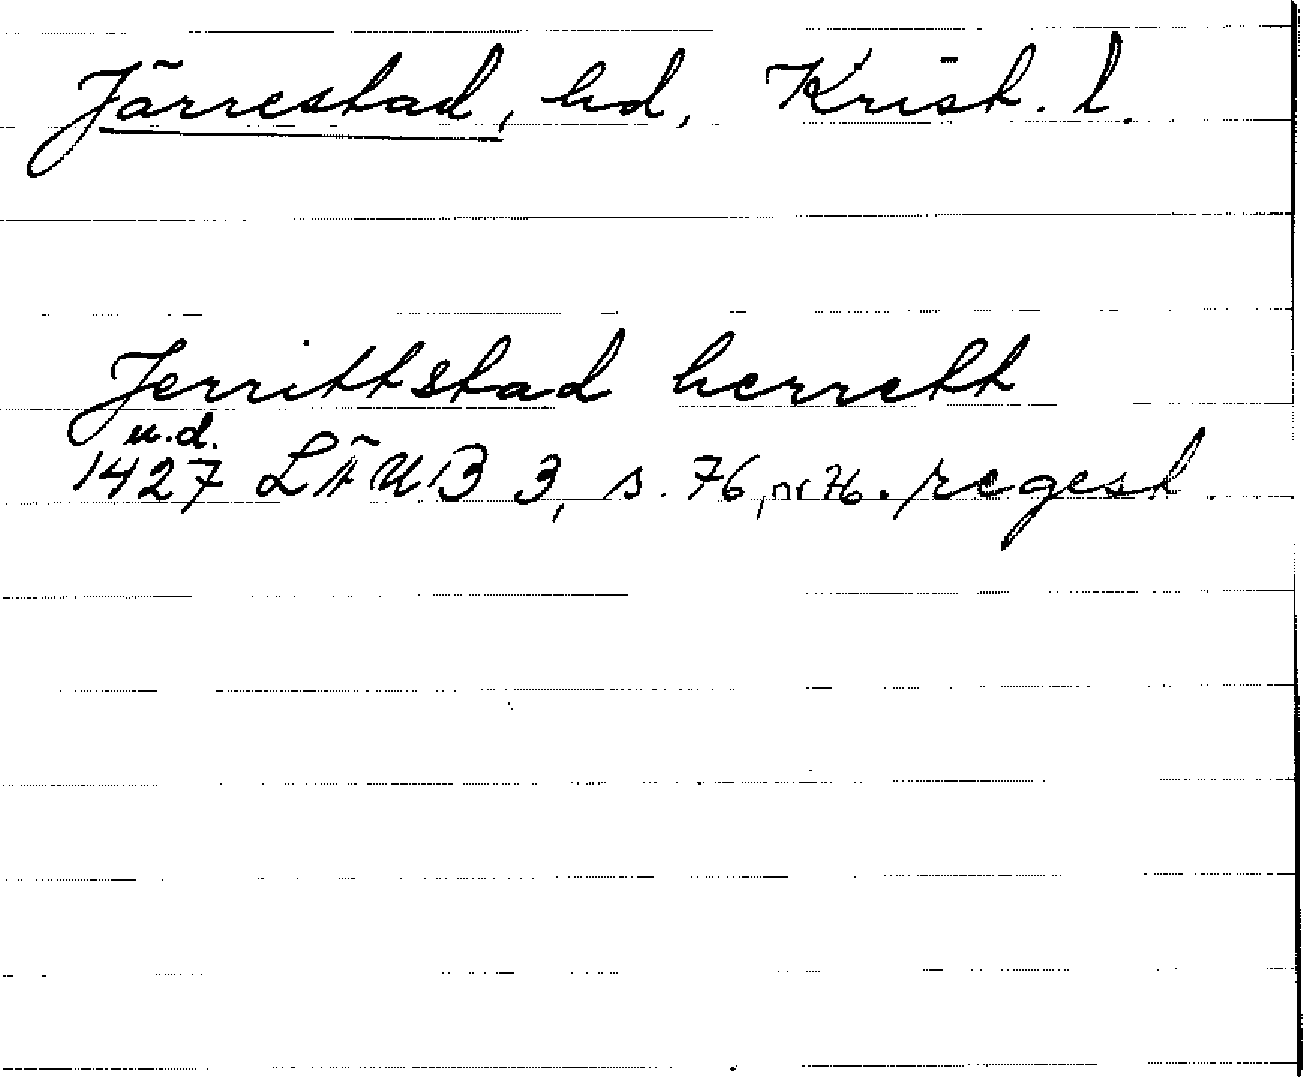 Järrestad, hd, Krist. l.
Jerrittstad herrett
u.d.
1427 LÄUB 3, s. 76, nr 76. regest.